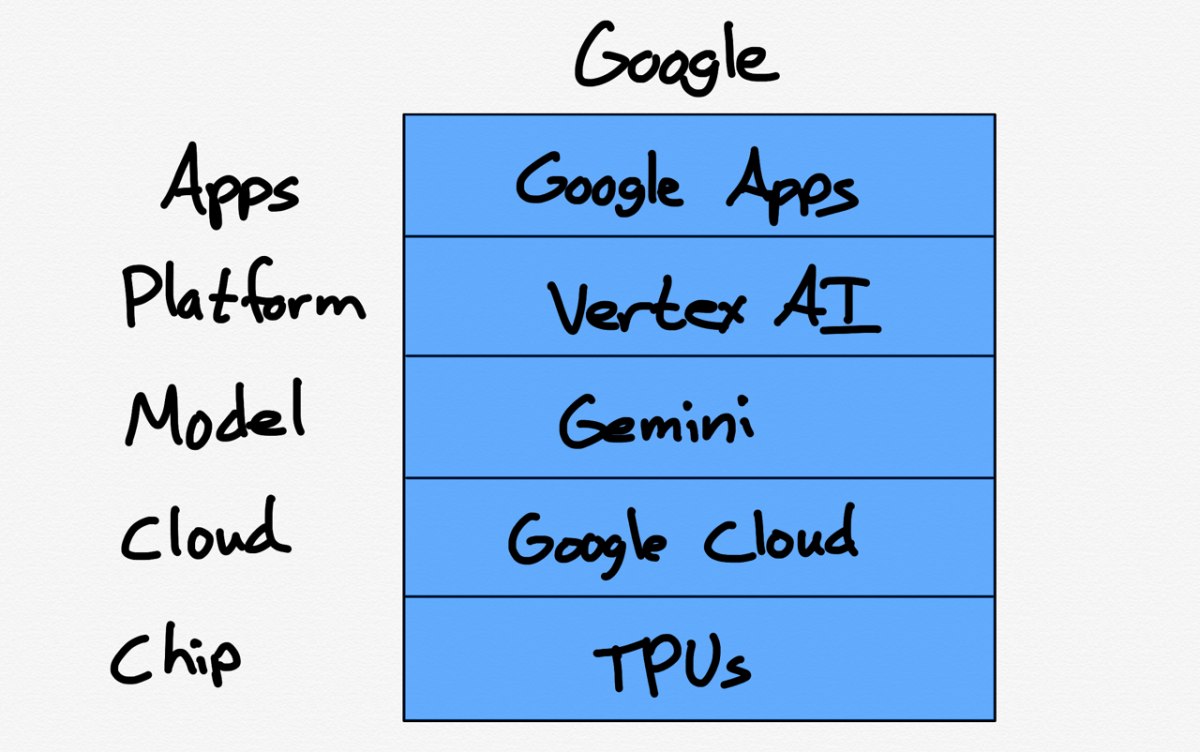 Google
Apps Google Apps
Platform Vertex AI
Model Gemini
Cloud Google Cloud
Chip TPUs